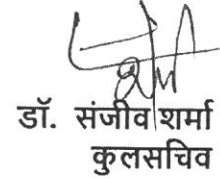 डॉ. संजीव शर्मा
कुलसचिव